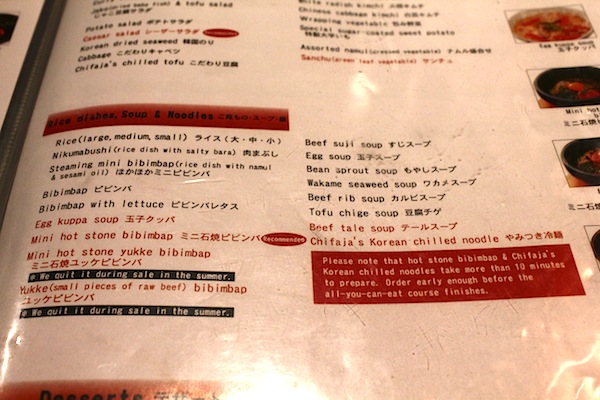 じゃこ豆腐サラダ
Potato salad ポテトサラダ
Caesar salad シーザーサラダ
Korean dried seaweed 韓国のり
Cabbage こだわりキャベツ
Chifaja's chilled tofu こだわり豆腐
White radish kimchi
Chinese cabbage kimchi 白菜キムチ
Wrapping vegetable 包み野菜
Special sugar-coated sweet potato
特製大学いも
Assorted namul(dressed vegetable) ナムル盛合せ
Sanchu(green leaf vegetable) サンチュ
Egg kuppa soup
玉子クッパ
Mini hot
ミニ石焼ビ
Rice dishes,Soup & Noodles ご飯もの・スープ・麺
Rice(large, medium, small) ライス(大・中・小)
Nikumabushi(rice dish with salty bara) 肉まぶし
Steaming mini bibimbap(rice dish with namul
& sesami oil) ほかほかミニビビンバ
Bibimbap ビビンバ
Bibimbap with lettuce ビビンバレタス
Egg kuppa soup 玉子クッパ
Mini hot stone bibimbap ミニ石焼ビビンバ Recommended
Mini hot stone yukke bibimbap
ミニ石焼ユッケビビンバ
* We quit it during sale in the summer.
Yukke(small pieces of raw beef) bibimbap
ユッケビビンバ
* We quit it during sale in the summer.
Beef suji soup すじスープ
Egg soup 玉子スープ
Bean sprout soup もやしスープ
Wakame seaweed soup ワカメスープ
Beef rib soup カルビスープ
Tofu chige soup 豆腐チゲ
Beef tale soup テールスープ
Chifaja's Korean chilled noodle やみつき冷麺
Please note that hot stone bibimbap & Chifaja's
Korean chilled noodles take more than 10 minutes
to prepare. Order early enough before the
all-you-can-eat course finishes.
Desserts